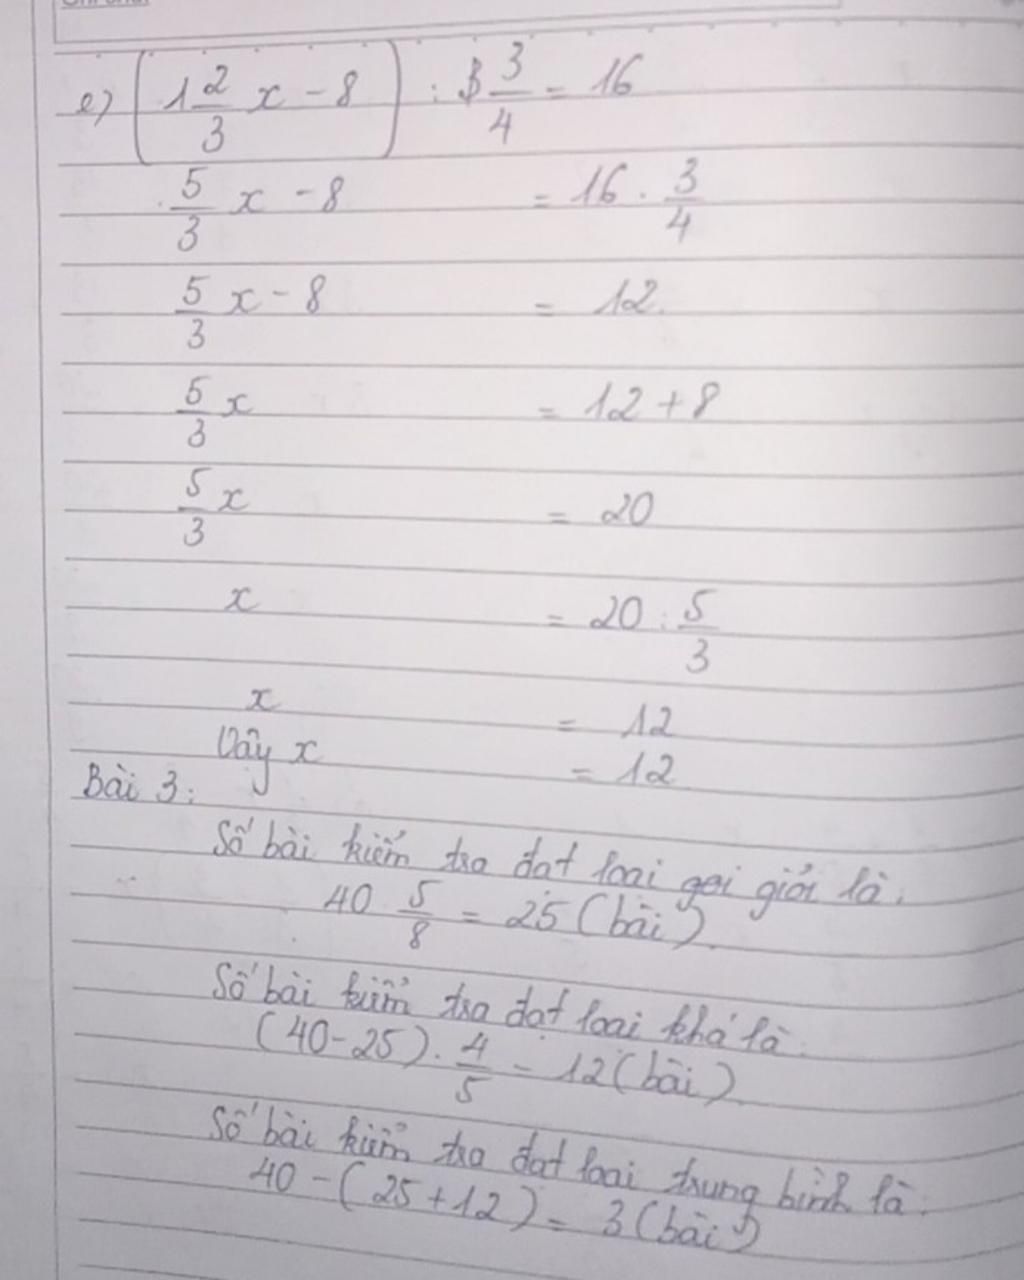 e) (1 2/3 x - 8) : 3/4 = 16
5/3 x - 8 = 16 . 3/4
5/3 x - 8 = 12
5/3 x = 12 + 8
5/3 x = 20
x = 20 : 5/3
x = 12
Vậy x = 12
Bài 3:
Số bài kiểm tra đạt loại giỏi là:
40 . 5/8 = 25 (bài)
Số bài kiểm tra đạt loại khá là
(40-25) . 4/5 = 12 (bài)
Số bài kiểm tra đạt loại trung bình là:
40 - (25 + 12) = 3 (bài)